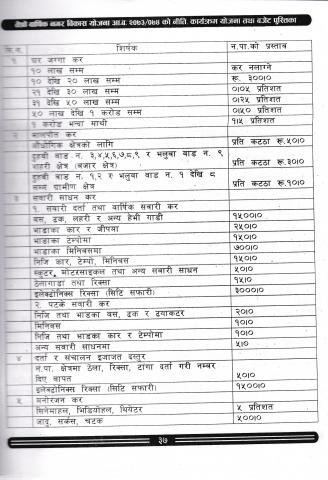 तेस्रो वार्षिक नगर विकास योजना आ.ब. २०७३/०७४ को नीति, कार्यक्रम योजना तथा बजेट पुस्तिका
शिर्षक न.पा.को प्रस्ताव
१ घर जग्गा कर
१० लाख सम्म कर नलाग्ने
१० देखि २० लाख सम्म रु. ३००।०
२१ देखि ३० लाख सम्म ०।०५ प्रतिशत
३१ देखि ५० लाख सम्म ०।२५ प्रतिशत
५० लाख देखि १ करोड सम्म ०।५० प्रतिशत
१ करोड भन्दा माथी १।५ प्रतिशत
२ मालपोत कर
औधोगिक क्षेत्रको लागि प्रति कटठा रु.५०।०
दुहवी वाड न. ३,४,५,६,७,८,९ र भलुवा वाड न. ९
शहरी क्षेत्र (बजार क्षेत्र) प्रति कटठा रु.३०।०
दुहवी वाड न. १,२ र भलुवा वाड न. १ देखि ८
सम्म ग्रामीण क्षेत्र प्रति कटठा रु.१०।०
३ सवारी साधन कर
१. सवारी दर्ता तथा वार्षिक सवारी कर
बस, ढक, लहरी र अन्य हेभी गाडी १५००।०
भाडाका कार र जीपमा २५०।०
भाडाका टेम्पोमा १५०।०
भाडाका मिनिबसमा ७००।०
निजि कार, टेम्पो, मिनिबस १५०।०
स्कुटर, मोटरसाइकल तथा अन्य सवारी साधन ५०।०
ठेलागाडा तथा रिक्सा १५।०
इलेक्ट्रोनिक्स रिक्सा (सिटि सफारी) ३०००।०
२. पटके सवारी कर
निजि तथा भाडका बस, ढक र टयाकटर २०।०
मिनिबस १०।०
निजि तथा भाडका कार र टेम्पोमा १०।०
अन्य सवारी साधनमा ५।०
४ दर्ता र संचालन इजाजत दस्तुर
न.पा. क्षेत्रमा ठेला, रिक्सा, टांगा दर्ता गरी नम्बर
दिए बापत ५०।०
इलेक्ट्रोनिक्स रिक्सा (सिटि सफारी) १५००।०
५ मनोरंजन कर
सिनेमाहल, भिडियोहल, थियेटर ५ प्रतिशत
जादु, सर्कस, चटक ५००।०
३७